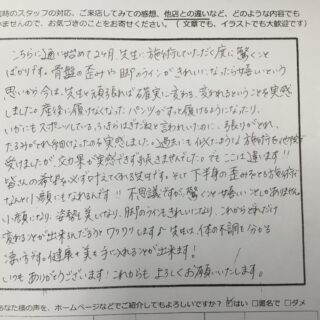 時のスタッフの対応、ご来店してみての感想、他店との違いなど、どのような内容でも
いませんので、お気づきのことをお寄せください。（文章でも、イラストでも大歓迎です）
こちらに通い始めて2ヶ月、先生に施術していただく度に驚くこと
ばかりです。骨盤の歪みや脚のラインがきれいになったら嬉しいという
思いから今は先生と頑張れば確実に変わる、変われるということを実感
しました。産後に履けなくなったパンツがすっと履けるようになったり、
いかにもスポーツしている、ふきらはぎだねと言われていたのに、張りがとれ、
たるみがとれ細くなったのを実感しました。過去にも似たような施術を他で
受けましたが、効果が実感できず続きませんでした。でもここは違います!!
皆さんの希望を必ず叶えてくれる先生です。そして下半身の歪みをとる施術で
なんと小顔にもなれるんです!! 不思議ですが、驚くこと嬉しいことしかありません。
小顔になり、姿勢も美しくなり、脚のラインもきれいになり、これからどれだけ
変わることが出来るんだろうかワクワクします♪先生は体の不調もわかる
凄い方です。健康も美も手に入れることが出来ます!
いつもありがとうございます!これからもよろしくお願いいたします。
あなた様の声を、ホームページなどでご紹介してもよろしいですか？ はい □匿名で □ダメ